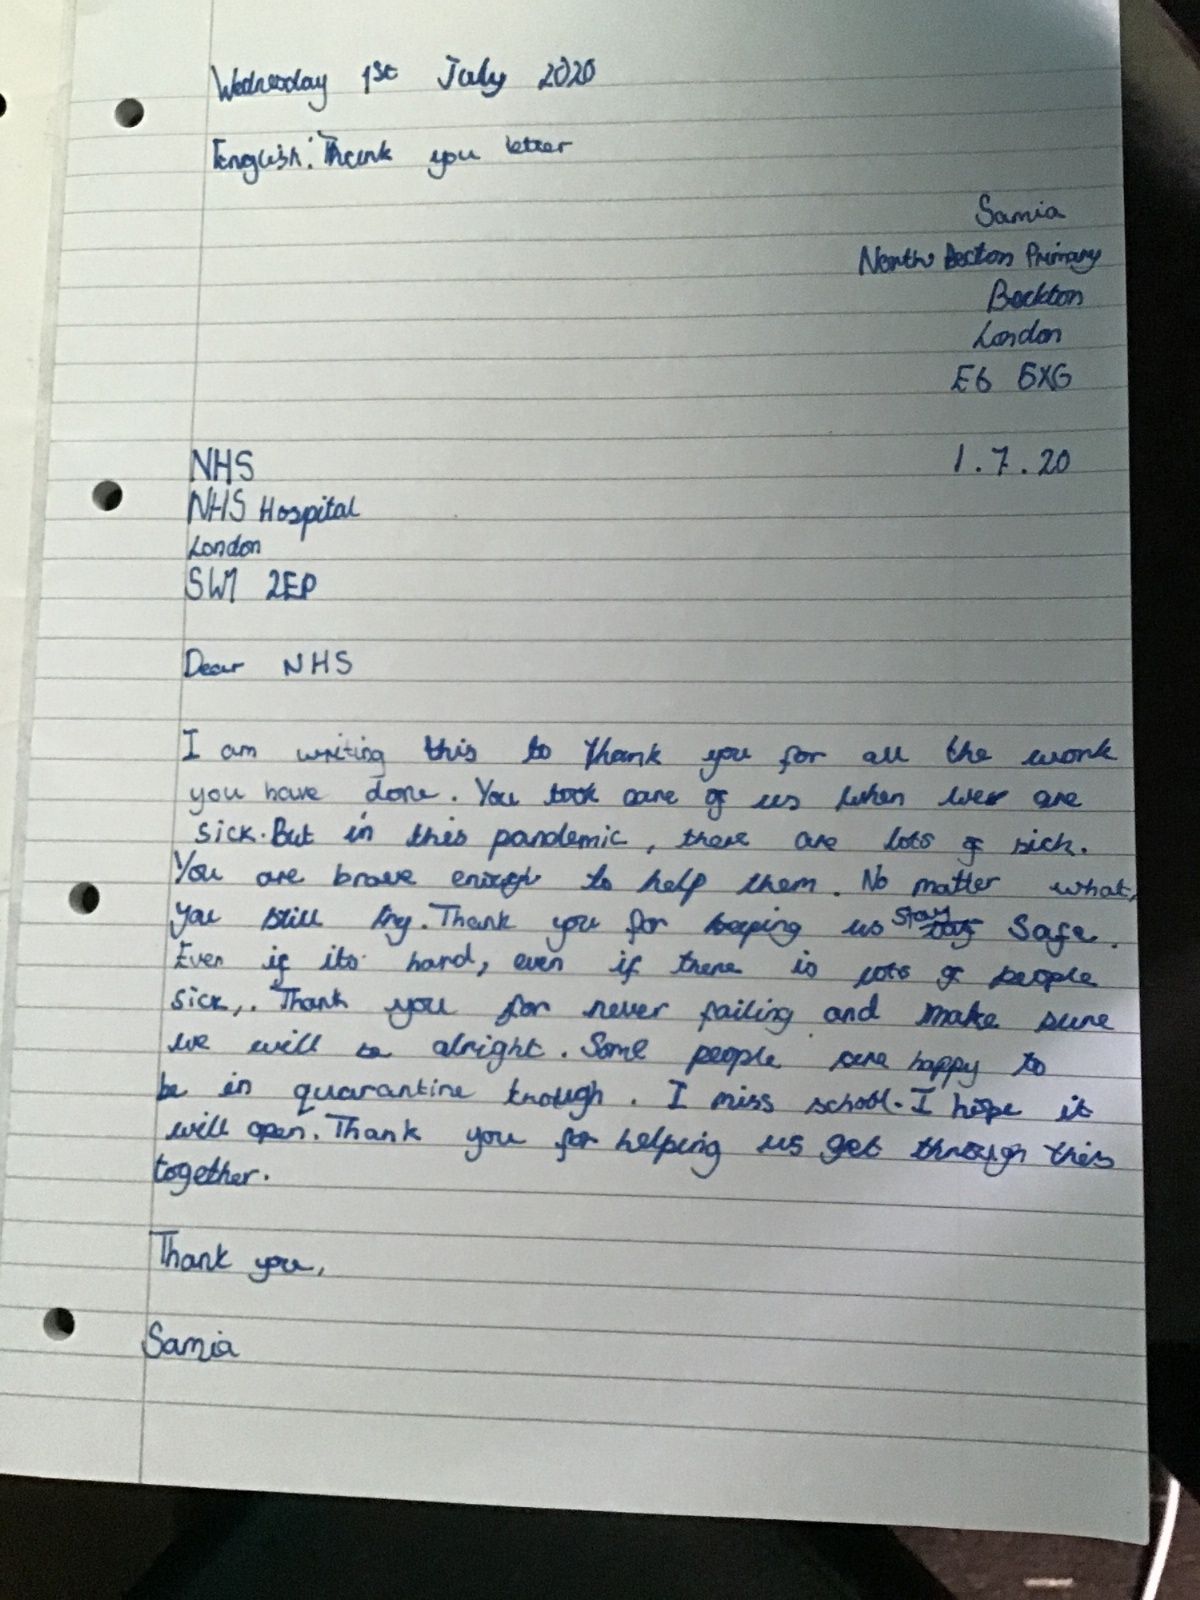 Wednesday 1st July 2020
English: Thank you letter
Samia
North Becton Primary
Beckton
London
E6 5XG
NHS 1.7.20
NHS Hospital
London
SW1 2EP
Dear NHS
I am writing this to thank you for all the work
you have done. You took care of us when we are
sick. But in this pandemic, there are lots of sick.
You are brave enough to help them. No matter what,
you still try. Thank you for keeping us stay safe.
Even if its hard, even if there is lots of people
sick,. Thank you for never failing and make sure
we will be alright. Some people are happy to
be in quarantine though. I miss school. I hope it
will open. Thank you for helping us get through this
together.
Thank you,
Samia